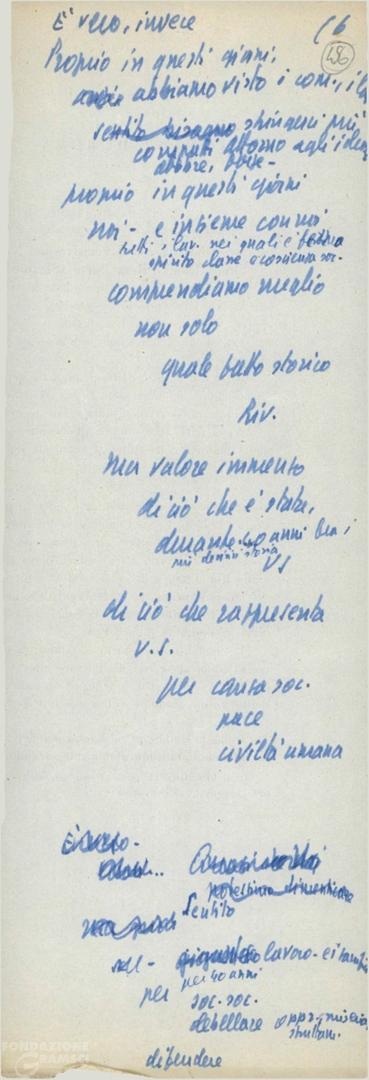 È vero, invece
( 6
486
Proprio in questi giorni,
abbiamo visto i com., i la
sentito bisogno stringersi più
compatti attorno agli ideali
proprio in questi giorni
noi - e insieme con noi
tutti i lav. nei quali è
spirito classe e coscienza soc. -
comprendiamo meglio
non solo
quale fatto storico
Riv.
ma valore immenso
di ciò che è stata,
durante 40 anni
più di storia
U S
di ciò che rappresenta
U.S.
per causa soc.
pace
civiltà umana
È vero -
dimenticare
Sentito
nell' - lavoro - ei
per 40 anni
per soc. soc.
debellare oppr. - miseria
sfruttam.
difendere
FONDAZIONE
GRAMSCI